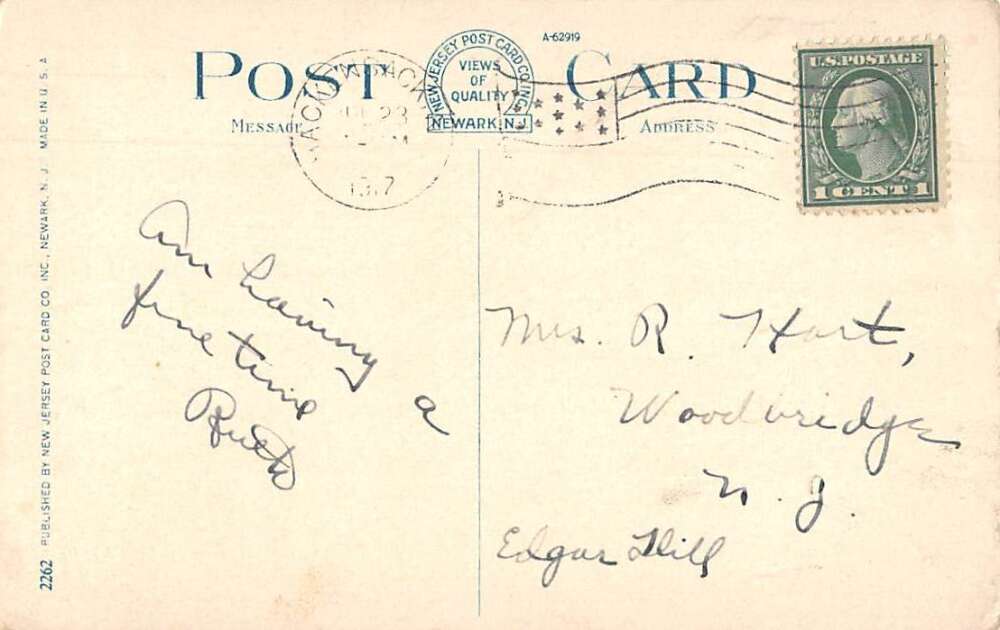 A-62919
POST CARD
NEW JERSEY POST CARD CO. INC.
VIEWS
OF
QUALITY
NEWARK, N.J.
U.S. POSTAGE
1 CENT 1
HACKENSACK
23
1917
MESSAGE
ADDRESS
Am having a
fine time
Ruth
Mrs. R. Hart,
Woodbridge
N. J.
Edgar Hill
2262 PUBLISHED BY NEW JERSEY POST CARD CO. INC., NEWARK, N. J. MADE IN U. S. A